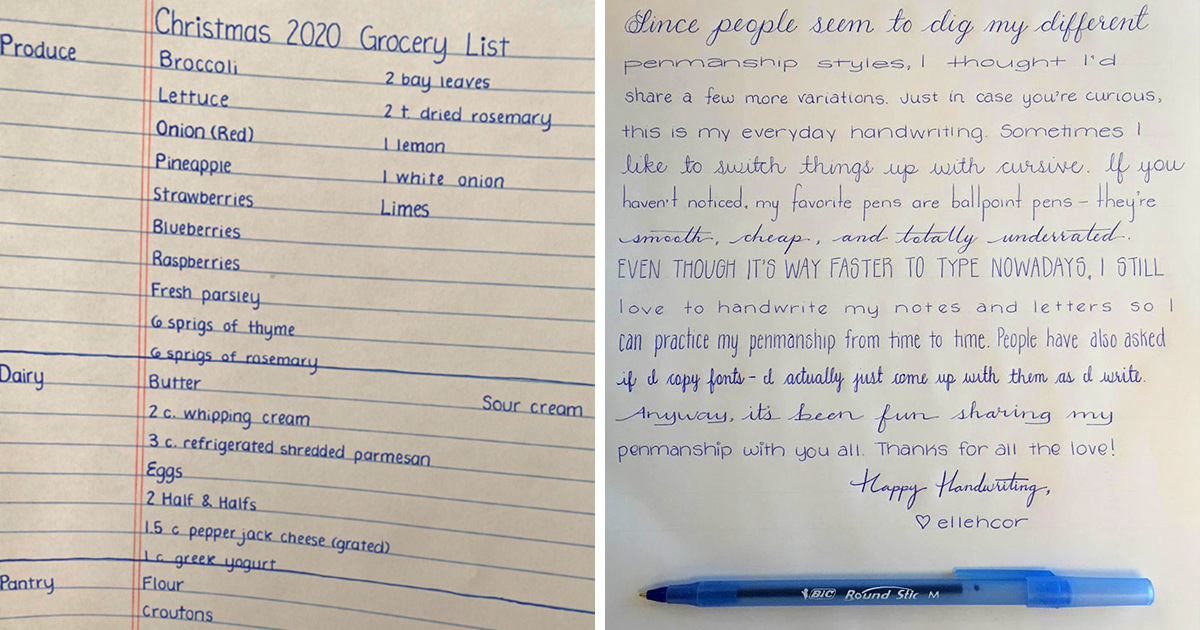 Christmas 2020 Grocery List
Produce
Broccoli
2 bay leaves
Lettuce
2 t. dried rosemary
Onion (Red)
1 lemon
Pineapple
1 white onion
Strawberries
Limes
Blueberries
Raspberries
Fresh parsley
6 sprigs of thyme
6 sprigs of rosemary
Dairy
Butter
Sour cream
2 c. whipping cream
3 c. refrigerated shredded parmesan
Eggs
2 Half & Halfs
1.5 c pepper jack cheese (grated)
1 c. greek yogurt
Pantry
Flour
Croutons
Since people seem to dig my different
penmanship styles, I thought I'd
share a few more variations. Just in case you're curious,
this is my everyday handwriting. Sometimes I
like to switch things up with cursive. If you
haven't noticed, my favorite pens are ballpoint pens – they're
smooth, cheap, and totally underrated.
EVEN THOUGH IT'S WAY FASTER TO TYPE NOWADAYS, I STILL
love to handwrite my notes and letters so I
can practice my penmanship from time to time. People have also asked
if I copy fonts – I actually just come up with them as I write.
Anyway, it's been fun sharing my
penmanship with you all. Thanks for all the love!
Happy Handwriting,
♡ ellehcor
BIC Round Stic M